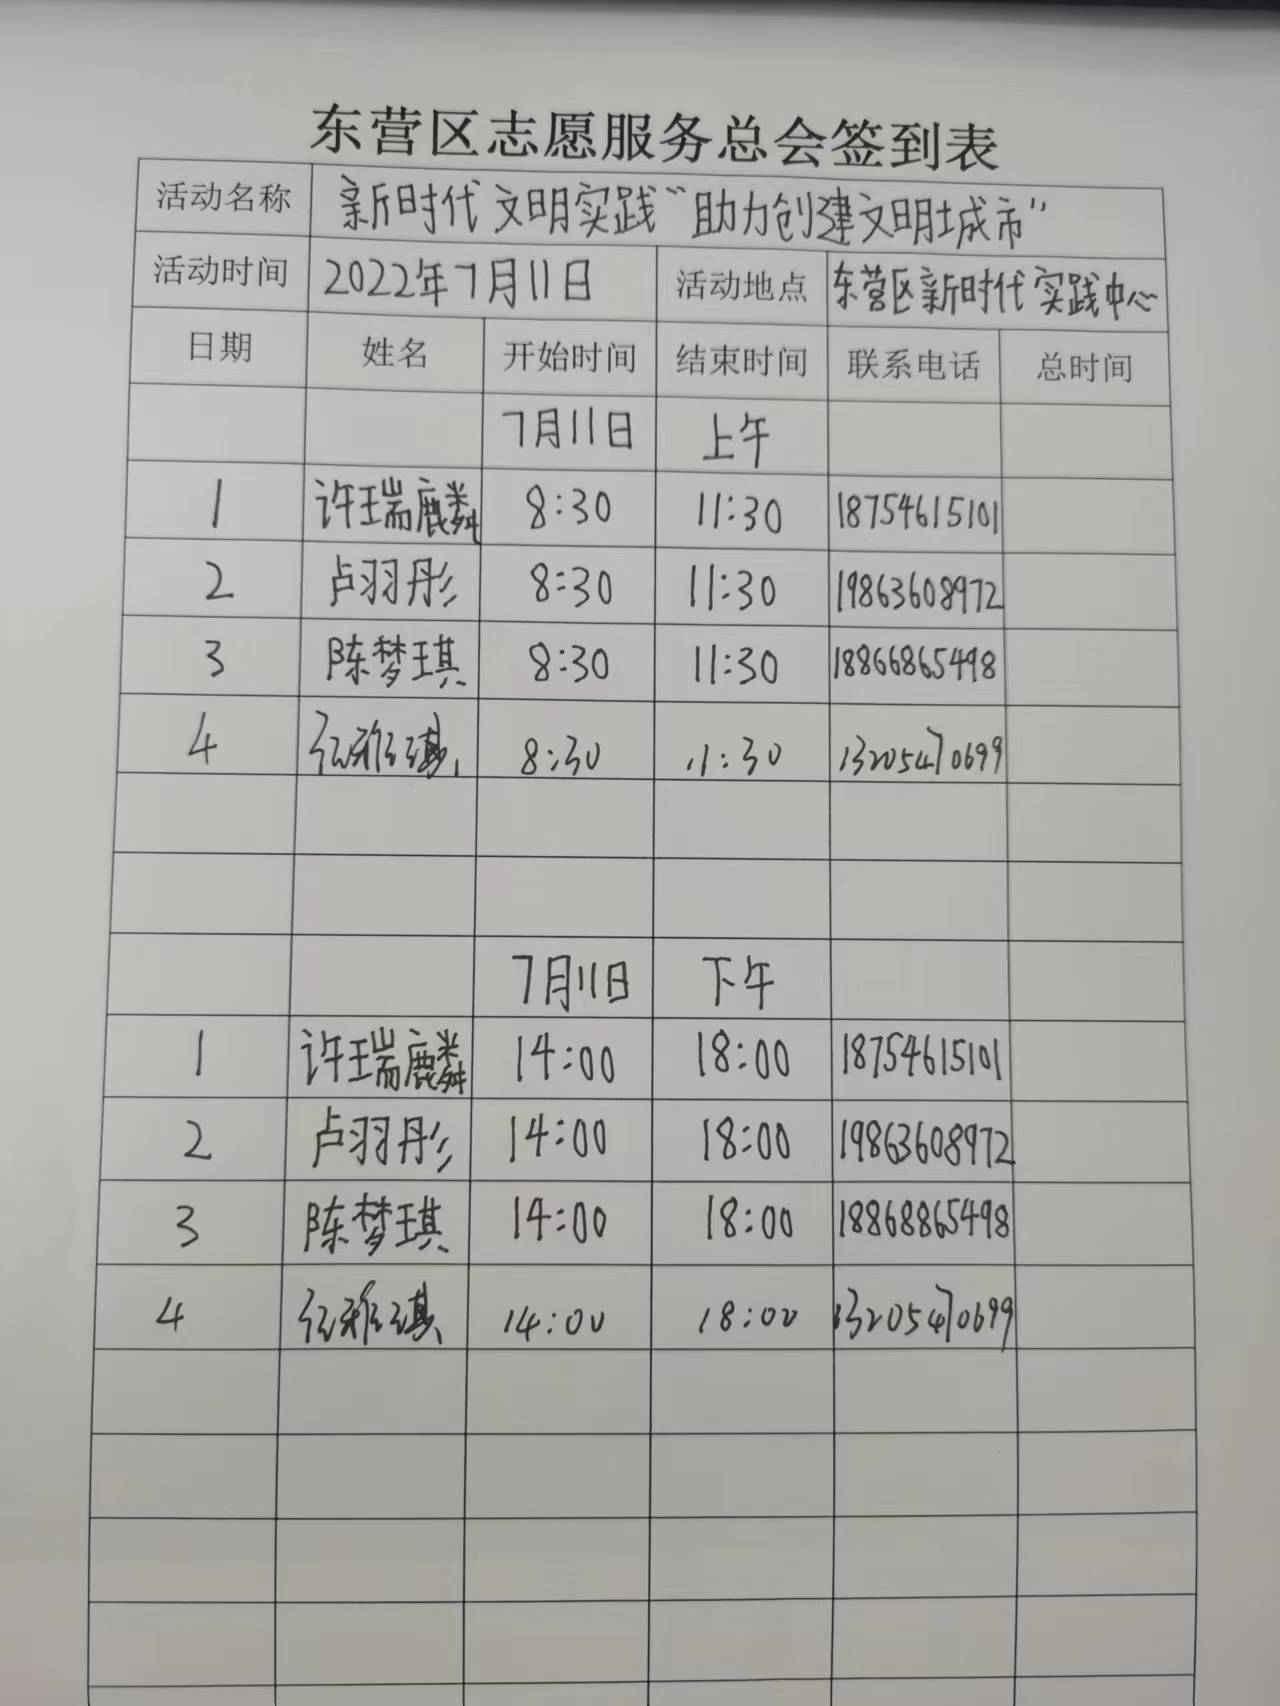 东营区志愿服务总会签到表
活动名称 新时代文明实践“助力创建文明城市”
活动时间 2022年7月11日 活动地点 东营区新时代实践中心
日期 姓名 开始时间 结束时间 联系电话 总时间
7月11日 上午
1 许瑞麟 8:30 11:30 18754615101
2 卢羽彤 8:30 11:30 19863608972
3 陈梦琪 8:30 11:30 18866865498
4 8:30 11:30 13205470699
7月11日 下午
1 许瑞麟 14:00 18:00 18754615101
2 卢羽彤 14:00 18:00 19863608972
3 陈梦琪 14:00 18:00 18868865498
4 14:00 18:00 13205470699